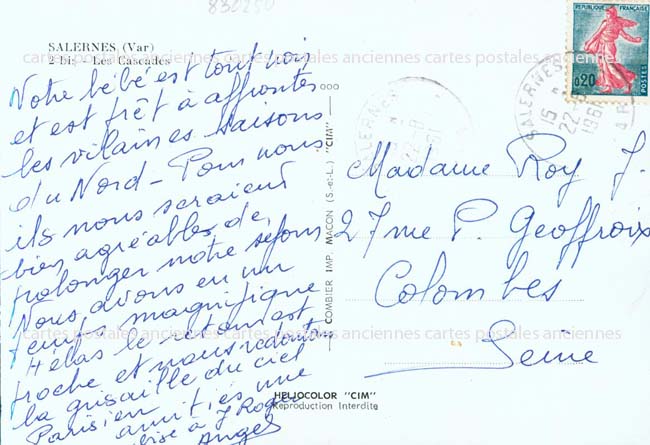 830250
SALERNES (Var)
2 bis - Les Cascades
Notre bébé est tout noir
et est prêt à affronter
les vilaines saisons
du Nord - Pour nous
ils nous seraient
bien agréables de
prolonger notre séjour
Nous avons eu un
temps magnifique
Hélas le retour est
proche et nous redoutons
la grisaille du ciel
Parisien
amitiés une
bise à J Roger
Angel
COMBIER IMP. MACON (S.-et-L.) "CIM"
HELIOCOLOR "CIM"
Reproduction Interdite
REPUBLIQUE FRANÇAISE
0,20
POSTES
SALERNES
15
22-8
VAR
Madame Roy J.
27 rue P. Geoffroix
Colombes
Seine
cartes postales anciennes cartes postales anciennes cartes postales anciennes
cartes postales anciennes cartes postales anciennes cartes postales anciennes